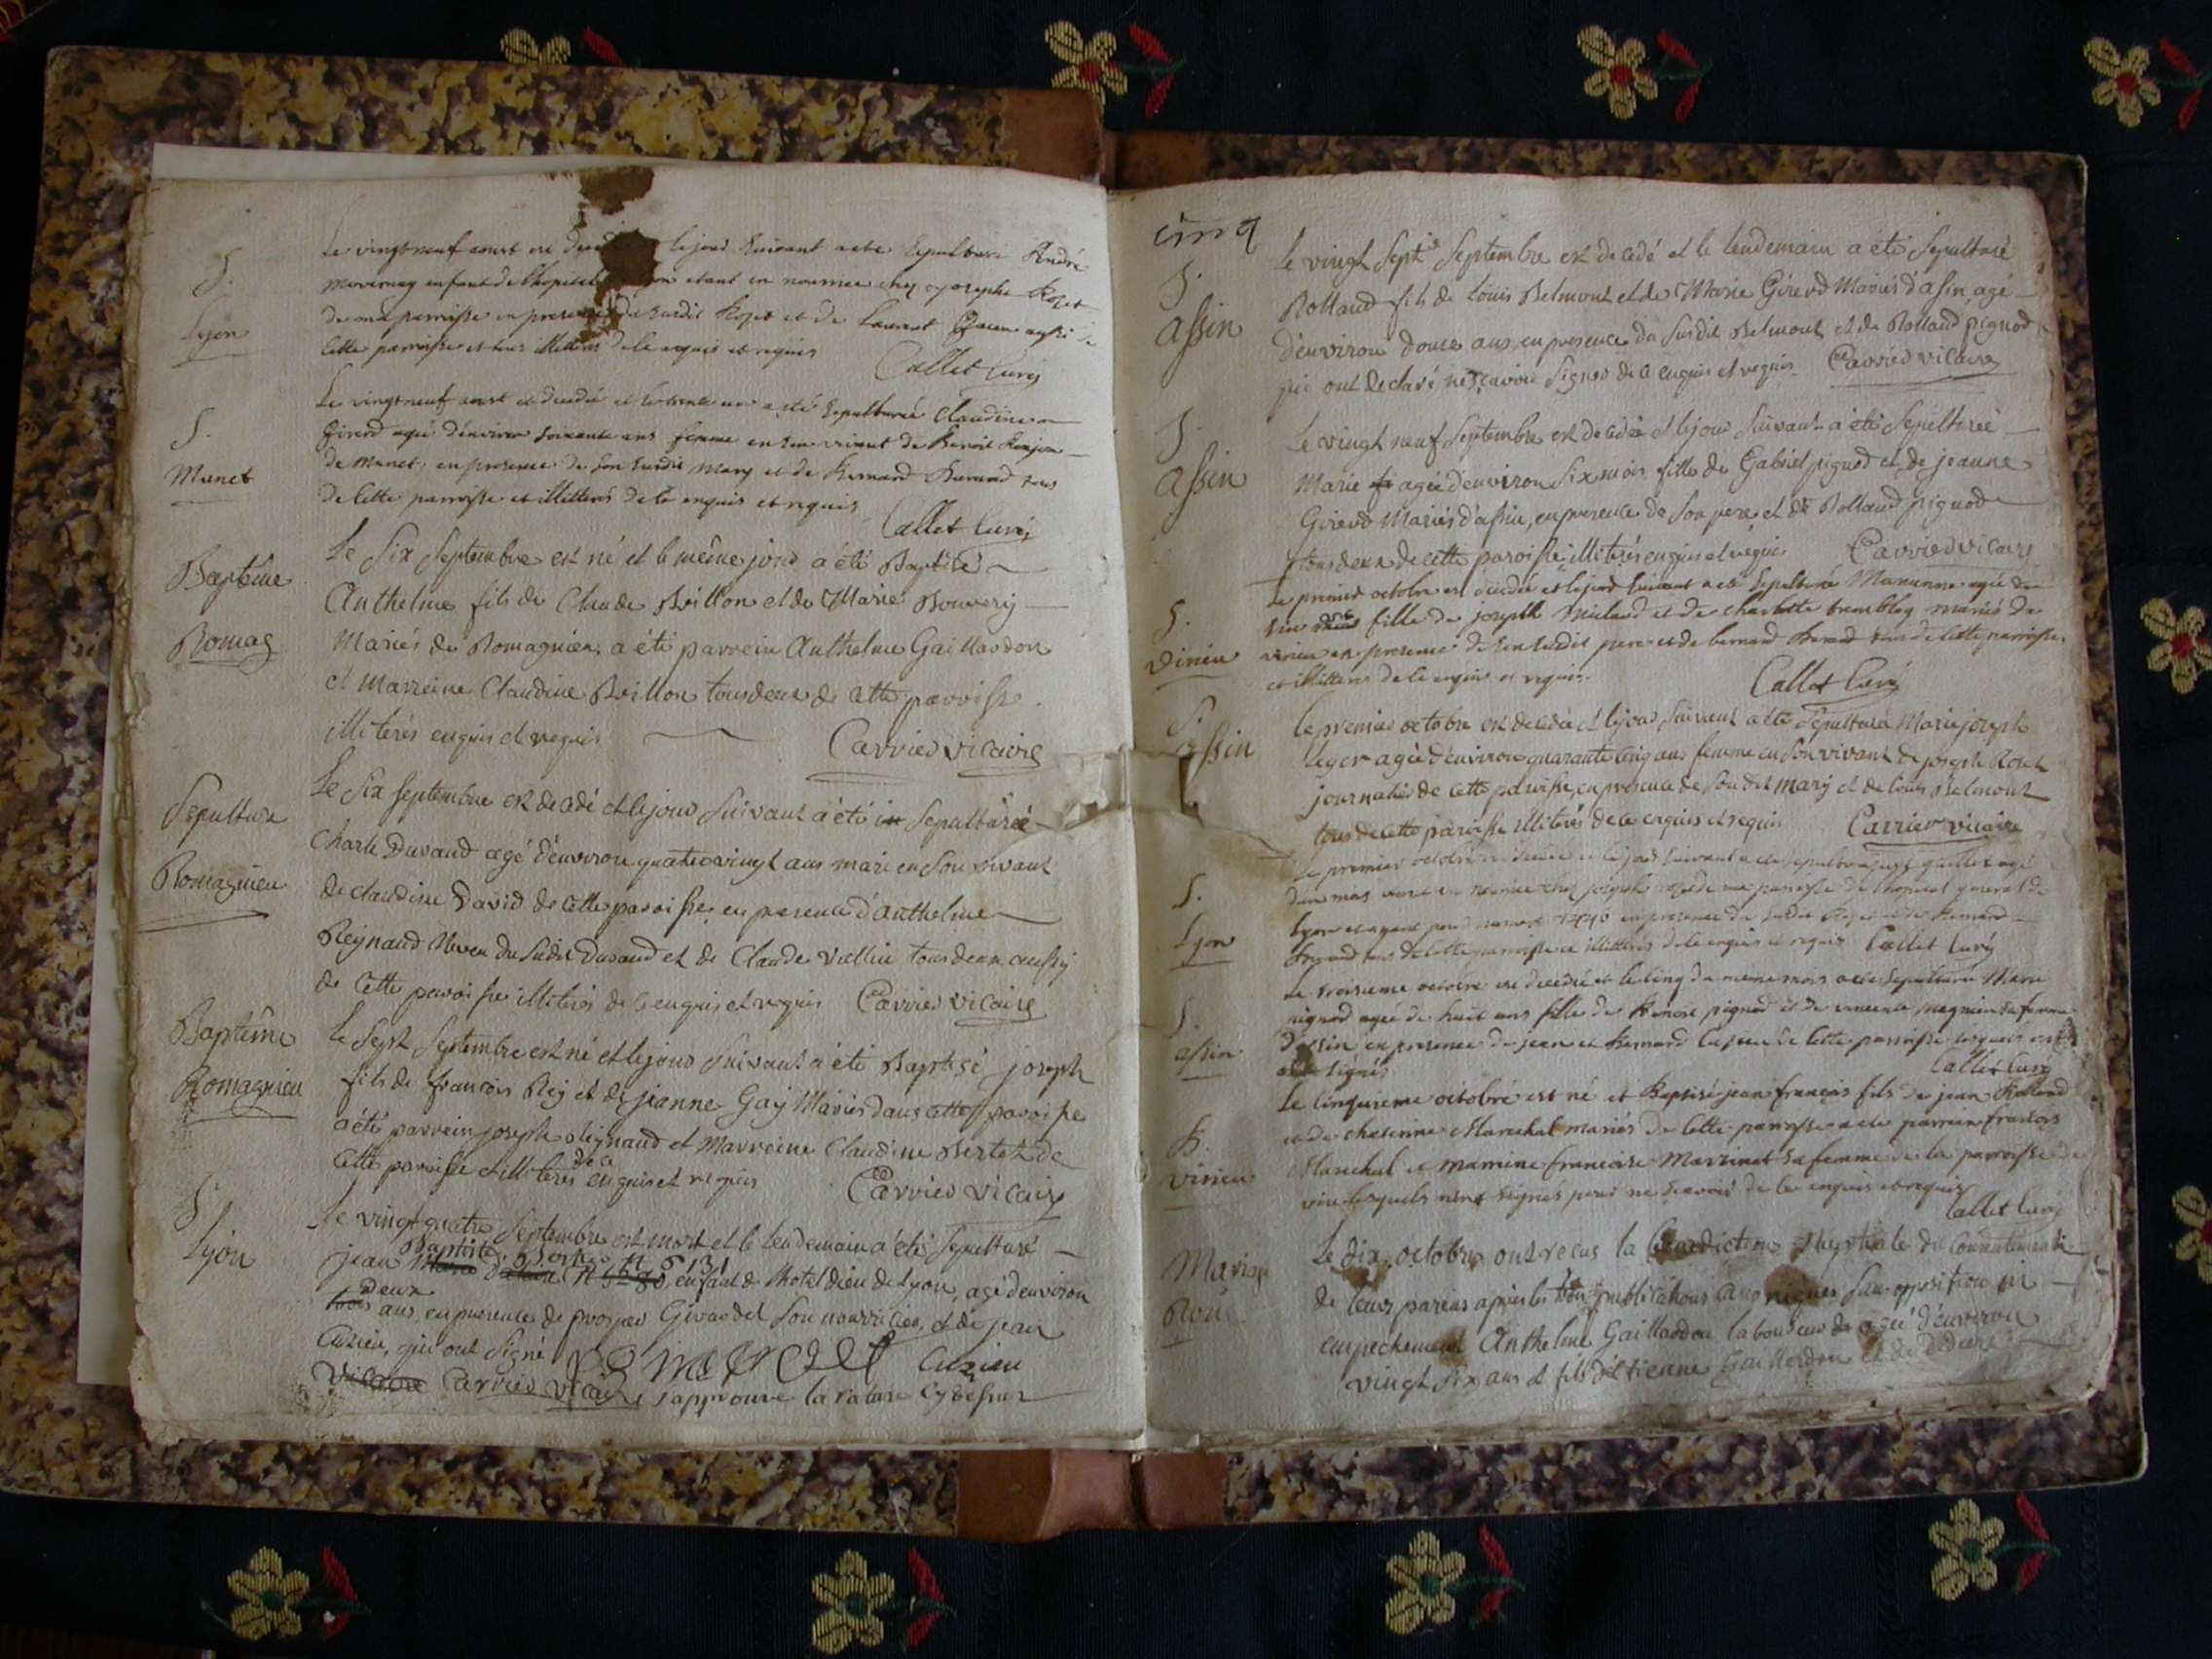 S.
Lyon
Le vingt neuf aoust est decedé le jour suivant a ete sepulturé André
enfant de l'hopital etant en nourrice chez joseph Rozet
de ma parroisse en presence du susdit Rozet et de Laurent aussi de
cette parroisse et tous illitteres de le enquis et requis
Callet Curé
S.
Munet
Le vingt neuf aoust est decedée et le trente un a eté sepulturée Claudine
Girerd agée d'environ soixante ans femme en son vivant de Benoit
de Munet, en presence de son susdit mary et de Bernard Durand tous
de cette parroisse et illitterés de le enquis et requis
Callet Curé
Baptême
Romag
Le Six Septembre est né et le même jour a été Baptisé
Anthelme fils de Claude Brillon et de Marie Bouvery
Mariés de Romagnieu, a été parrein Anthelme Gaillardon
et Marreine Claudine Brillon tous deux de cette parroisse
illiterés enquis et requis Carrier vicaire
Sepulture
Romagnieu
Le Six septembre est decedé et le jour Suivant a été in Sepulturée
Charle Durand agé d'environ quatre vingt ans mari en Son vivant
de claudine David de cette paroisse, en presence d'anthelme
Reynaud Neveu du Sudit Durand et de Claude Vallin tous deux aussy
de Cette paroisse illiterés de ce enquis et requis Carrier vicaire
Baptême
Romagnieu
le Sept Septembre est né et le jour Suivant a été Baptisé joseph
fils de francois Rey et de jeanne Gay Mariés dans cette paroisse
a été parrein joseph Reignaud et Marreine Claudine Bertet de
Cette paroisse et illiterés de ce enquis et requis Carrier vicaire
S.
Lyon
Le vingt quatre Septembre est mort et le lendemain a été Sepulturé
jean Baptiste enfant de l'hotel dieu de Lyon, agé d'environ
deux
trois ans, en presence de prosper Girardet Son nourricier, et de jean
Cuzieu, qui ont Signé Cuzieu
vicaire Carrier vicaire j'approuve la rature cy dessus
cinq
S.
assin
le vingt Sept Septembre est decedé et le lendemain a été Sepulturé
Rolland fils de Louis Belmont et de Marie Girerd Mariés d'assin, agé
d'environ douze ans, en presence du Susdit Belmont et de Rolland pignod
qui ont declaré ne sçavoir Signer de ce enquis et requis Carrier vicaire
S.
assin
le vingt neuf Septembre est decedée et le jour Suivant a été Sepulturée
Marie fi agée d'environ Six mois fille de Gabriel pignod et de jeanne
Girerd Mariés d'assin, en presence de Son pere et de Rolland pignod
tous deux de cette paroisse illiterés enquis et requis Carrier vicaire
S.
virieu
Le premier octobre est decedée et le jour suivant a eté sepulturée Marianne agée de
six fille de joseph Micloud et de charlotte tremblay mariés de
virieu en presence de son susdit pere et de bernard Durand tous de cette parroisse
et illitteres de le enquis et requis
Callet Curé
S.
assin
le premier octobre est decedée et le jour Suivant a été Sepulturée Marie joseph
leger agée d'environ quarante cinq ans femme en Son vivant de joseph Rozet
journalier de cette paroisse, en presence de Son dit mary et de louis Belmont
tous de cette paroisse illiterés de ce enquis et requis Carrier vicaire
S.
Lyon
Le premier octobre est decedé et le jour suivant a ete sepulturé guillet agé
d'un mois en nourrice chez joseph rozet de ma parroisse de l'hopital general de
Lyon et ayant pour numero en presence du susdit Rozet et de Bernard
Durand tous de cette parroisse et illitteres de le enquis et requis Callet Curé
S.
assin
Le troisieme octobre est decedée et le cinq du meme mois a ete sepulturée Marie
pignod agée de huit ans fille de Benoit pignod et de sa femme
d'assin en presence de jean et Bernard de cette parroisse lesquels ont
signés Callet Curé
B.
virieu
Le cinquieme octobre est né et Baptisé jean françois fils de jean Rolland
et de catherine Marechal mariés de cette parroisse a ete parrain francois
Marechal et marraine francoise Martinet sa femme de la parroisse de
lesquels n'ont signés pour ne sçavoir de le enquis et requis
Callet Curé
Mariage
Le dix octobre ont reçus la Benediction Nuptiale du Consentement
de leurs parens après les trois publications canoniques Sans opposition ni
empechement Anthelme Gaillardon laboureur agé d'environ
vingt six ans et fils d'étienne Gaillardon et de